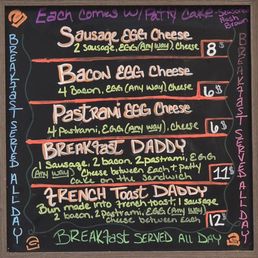 Each comes w/Patty Cake -
Hash
Brown
Sausage EGG Cheese
2 Sausage, EGG (Any way), Cheese
8$
Bacon EGG Cheese
4 Bacon, EGG (Any way), Cheese
6$
Pastrami EGG Cheese
4 Pastrami, EGG (Any way), Cheese
6$
BREAKfast DADDY
1 Sausage, 2 bacon, 2 pastrami, EGG
(Any way) Cheese between Each + Patty
cake on the Sandwich
11$
FRENCH Toast DADDY
Bun made into French toast: 1 sausage
2 bacon, 2 Pastrami, EGG (Any way)
Cheese between Each
12$
BREAKfast SERVED All DAY
BREAKFAST SERVED ALL DAY
BREAKFAST SERVED ALL DAY